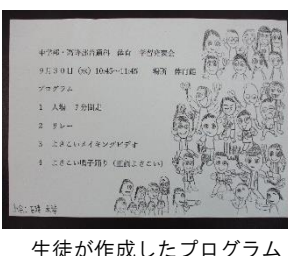 中学部・高等部普通科 体育 学習発表会
9月30日(水) 10:45~11:45 場所 体育館
プログラム
1 入場 7分間走
2 リレー
3 よさこいメイキングビデオ
4 よさこい鳴子踊り(正調よさこい)
生徒が作成したプログラム